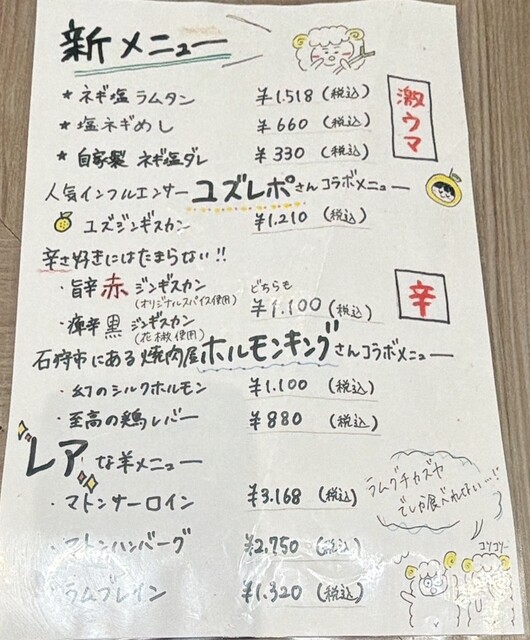 新メニュー
★ ネギ塩ラムタン ¥1.518 (税込)
★ 塩ネギめし ¥660 (税込)
★ 自家製 ネギ塩ダレ ¥330 (税込)
激ウマ
人気インフルエンサー ユズレポさんコラボメニュー
ユズジンギスカン ¥1.210 (税込)
辛さ好きにはたまらない!!
・旨辛 赤 ジンギスカン
(オリジナルスパイス使用)
・痺辛 黒 ジンギスカン
(花椒使用)
どちらも
¥1.100 (税込)
辛
石狩市にある焼肉屋ホルモンキングさんコラボメニュー
・幻のシルクホルモン ¥1.100 (税込)
・至高の鶏レバー ¥880 (税込)
レアな羊メニュー
・マトンサーロイン ¥3.168 (税込)
・マトンハンバーグ ¥2.750 (税込)
・ラムブレイン ¥1.320 (税込)
ラムグチカズヤ
でしか食べれてない…!
コソコソ